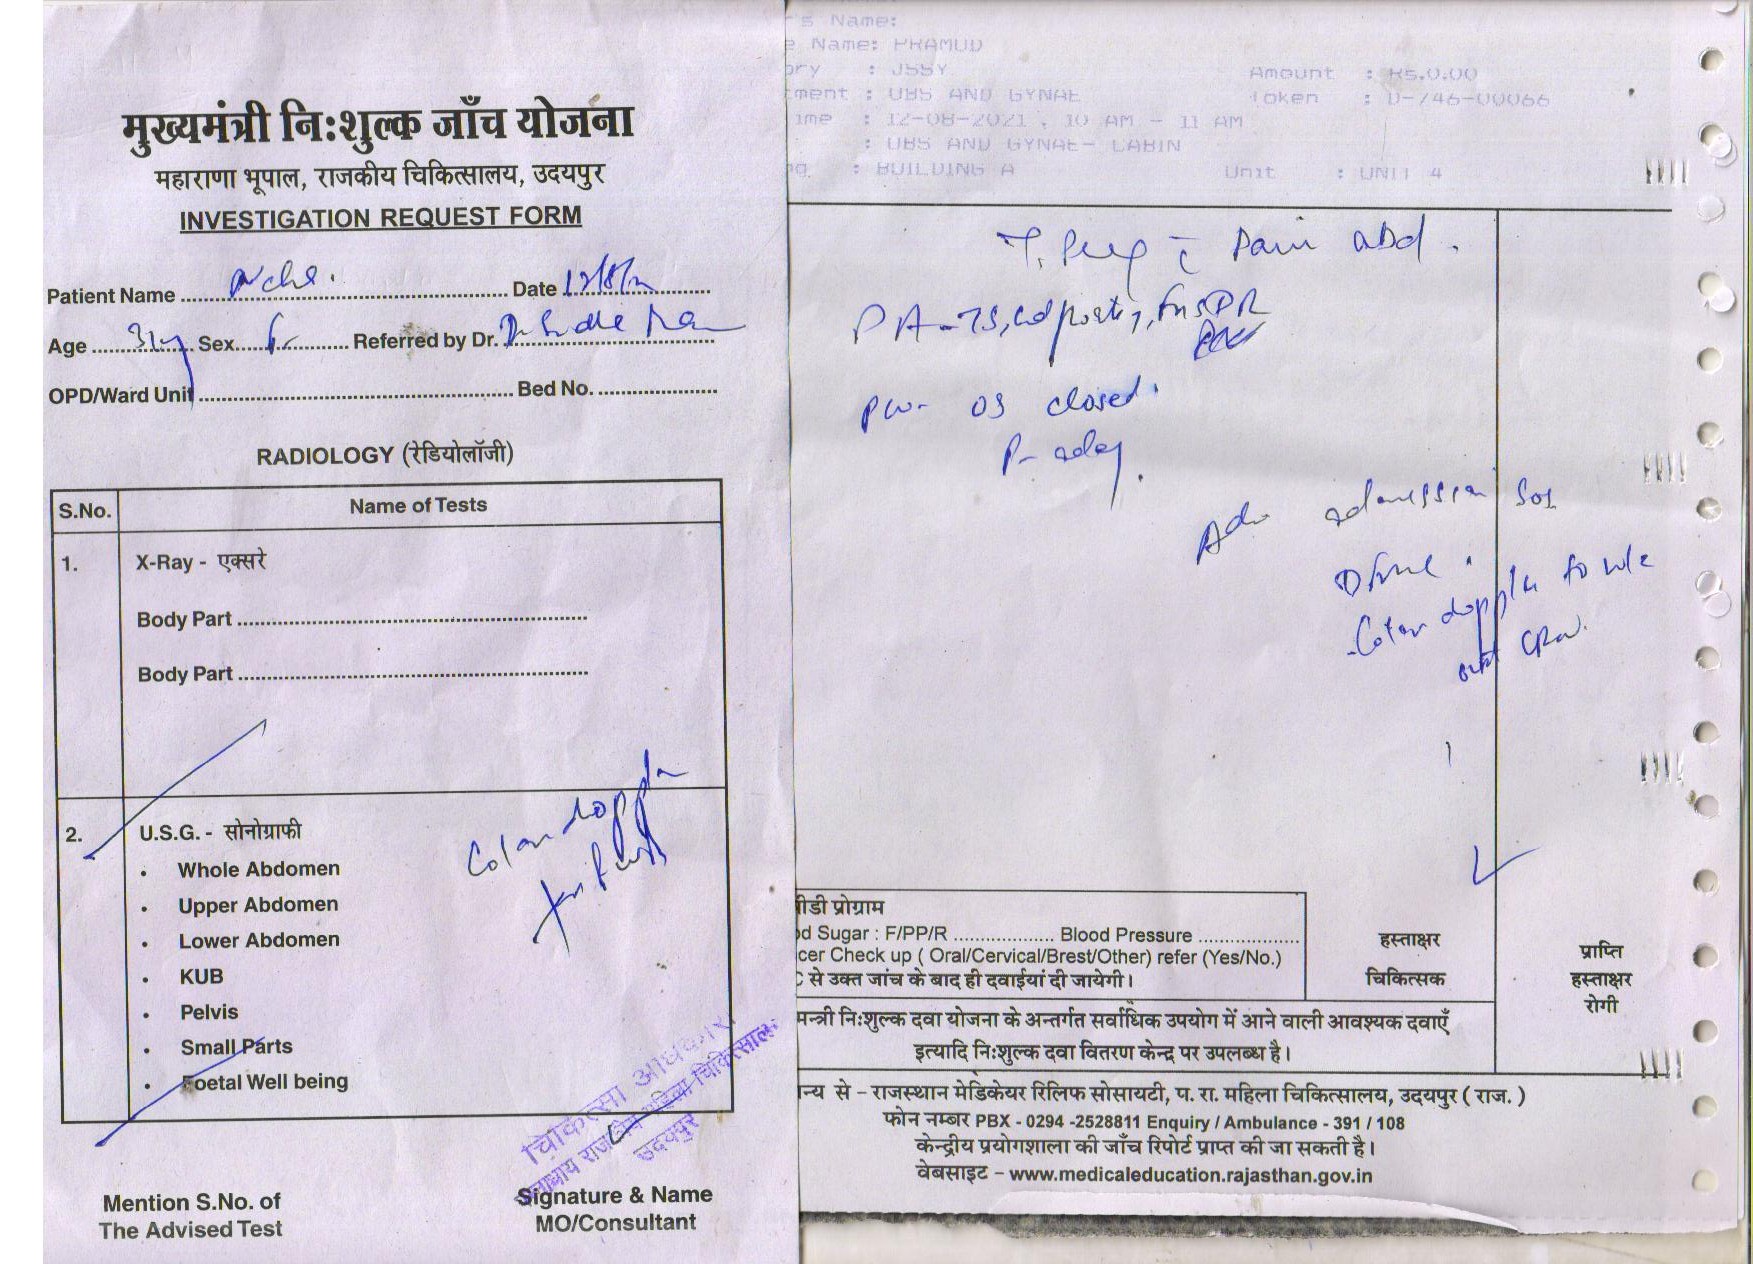 मुख्यमंत्री नि:शुल्क जाँच योजना
महाराणा भूपाल, राजकीय चिकित्सालय, उदयपुर
INVESTIGATION REQUEST FORM
Patient Name Date
Age 31y Sex F Referred by Dr.
OPD/Ward Unit Bed No.
RADIOLOGY (रेडियोलॉजी)
S.No. Name of Tests
1. X-Ray - एक्सरे
Body Part
Body Part
2. U.S.G. - सोनोग्राफी
• Whole Abdomen
• Upper Abdomen
• Lower Abdomen
• KUB
• Pelvis
• Small Parts
• Foetal Well being
Color doppler
चिकित्सा अधिकारी
महिला चिकित्सालय
उदयपुर
Mention S.No. of
The Advised Test
Signature & Name
MO/Consultant
's Name:
Name: PRAMUD
ory : JSSY Amount : Rs.0.00
tment : OBS AND GYNAE Token : D-746-00066
ime : 12-08-2021 , 10 AM - 11 AM
: OBS AND GYNAE- CABIN
: BUILDING A Unit : UNIT 4
Pain abd.
OS closed.
Adv admission SOS
Color doppler to r/o
ीडी प्रोग्राम
d Sugar : F/PP/R Blood Pressure
cer Check up ( Oral/Cervical/Brest/Other) refer (Yes/No.)
से उक्त जांच के बाद ही दवाईयां दी जायेगी।
हस्ताक्षर
चिकित्सक
प्राप्ति
हस्ताक्षर
रोगी
मन्त्री निःशुल्क दवा योजना के अन्तर्गत सर्वाधिक उपयोग में आने वाली आवश्यक दवाएँ
इत्यादि निःशुल्क दवा वितरण केन्द्र पर उपलब्ध है।
न्य से – राजस्थान मेडिकेयर रिलिफ सोसायटी, प. रा. महिला चिकित्सालय, उदयपुर ( राज. )
फोन नम्बर PBX - 0294 -2528811 Enquiry / Ambulance - 391 / 108
केन्द्रीय प्रयोगशाला की जाँच रिपोर्ट प्राप्त की जा सकती है।
वेबसाइट – www.medicaleducation.rajasthan.gov.in